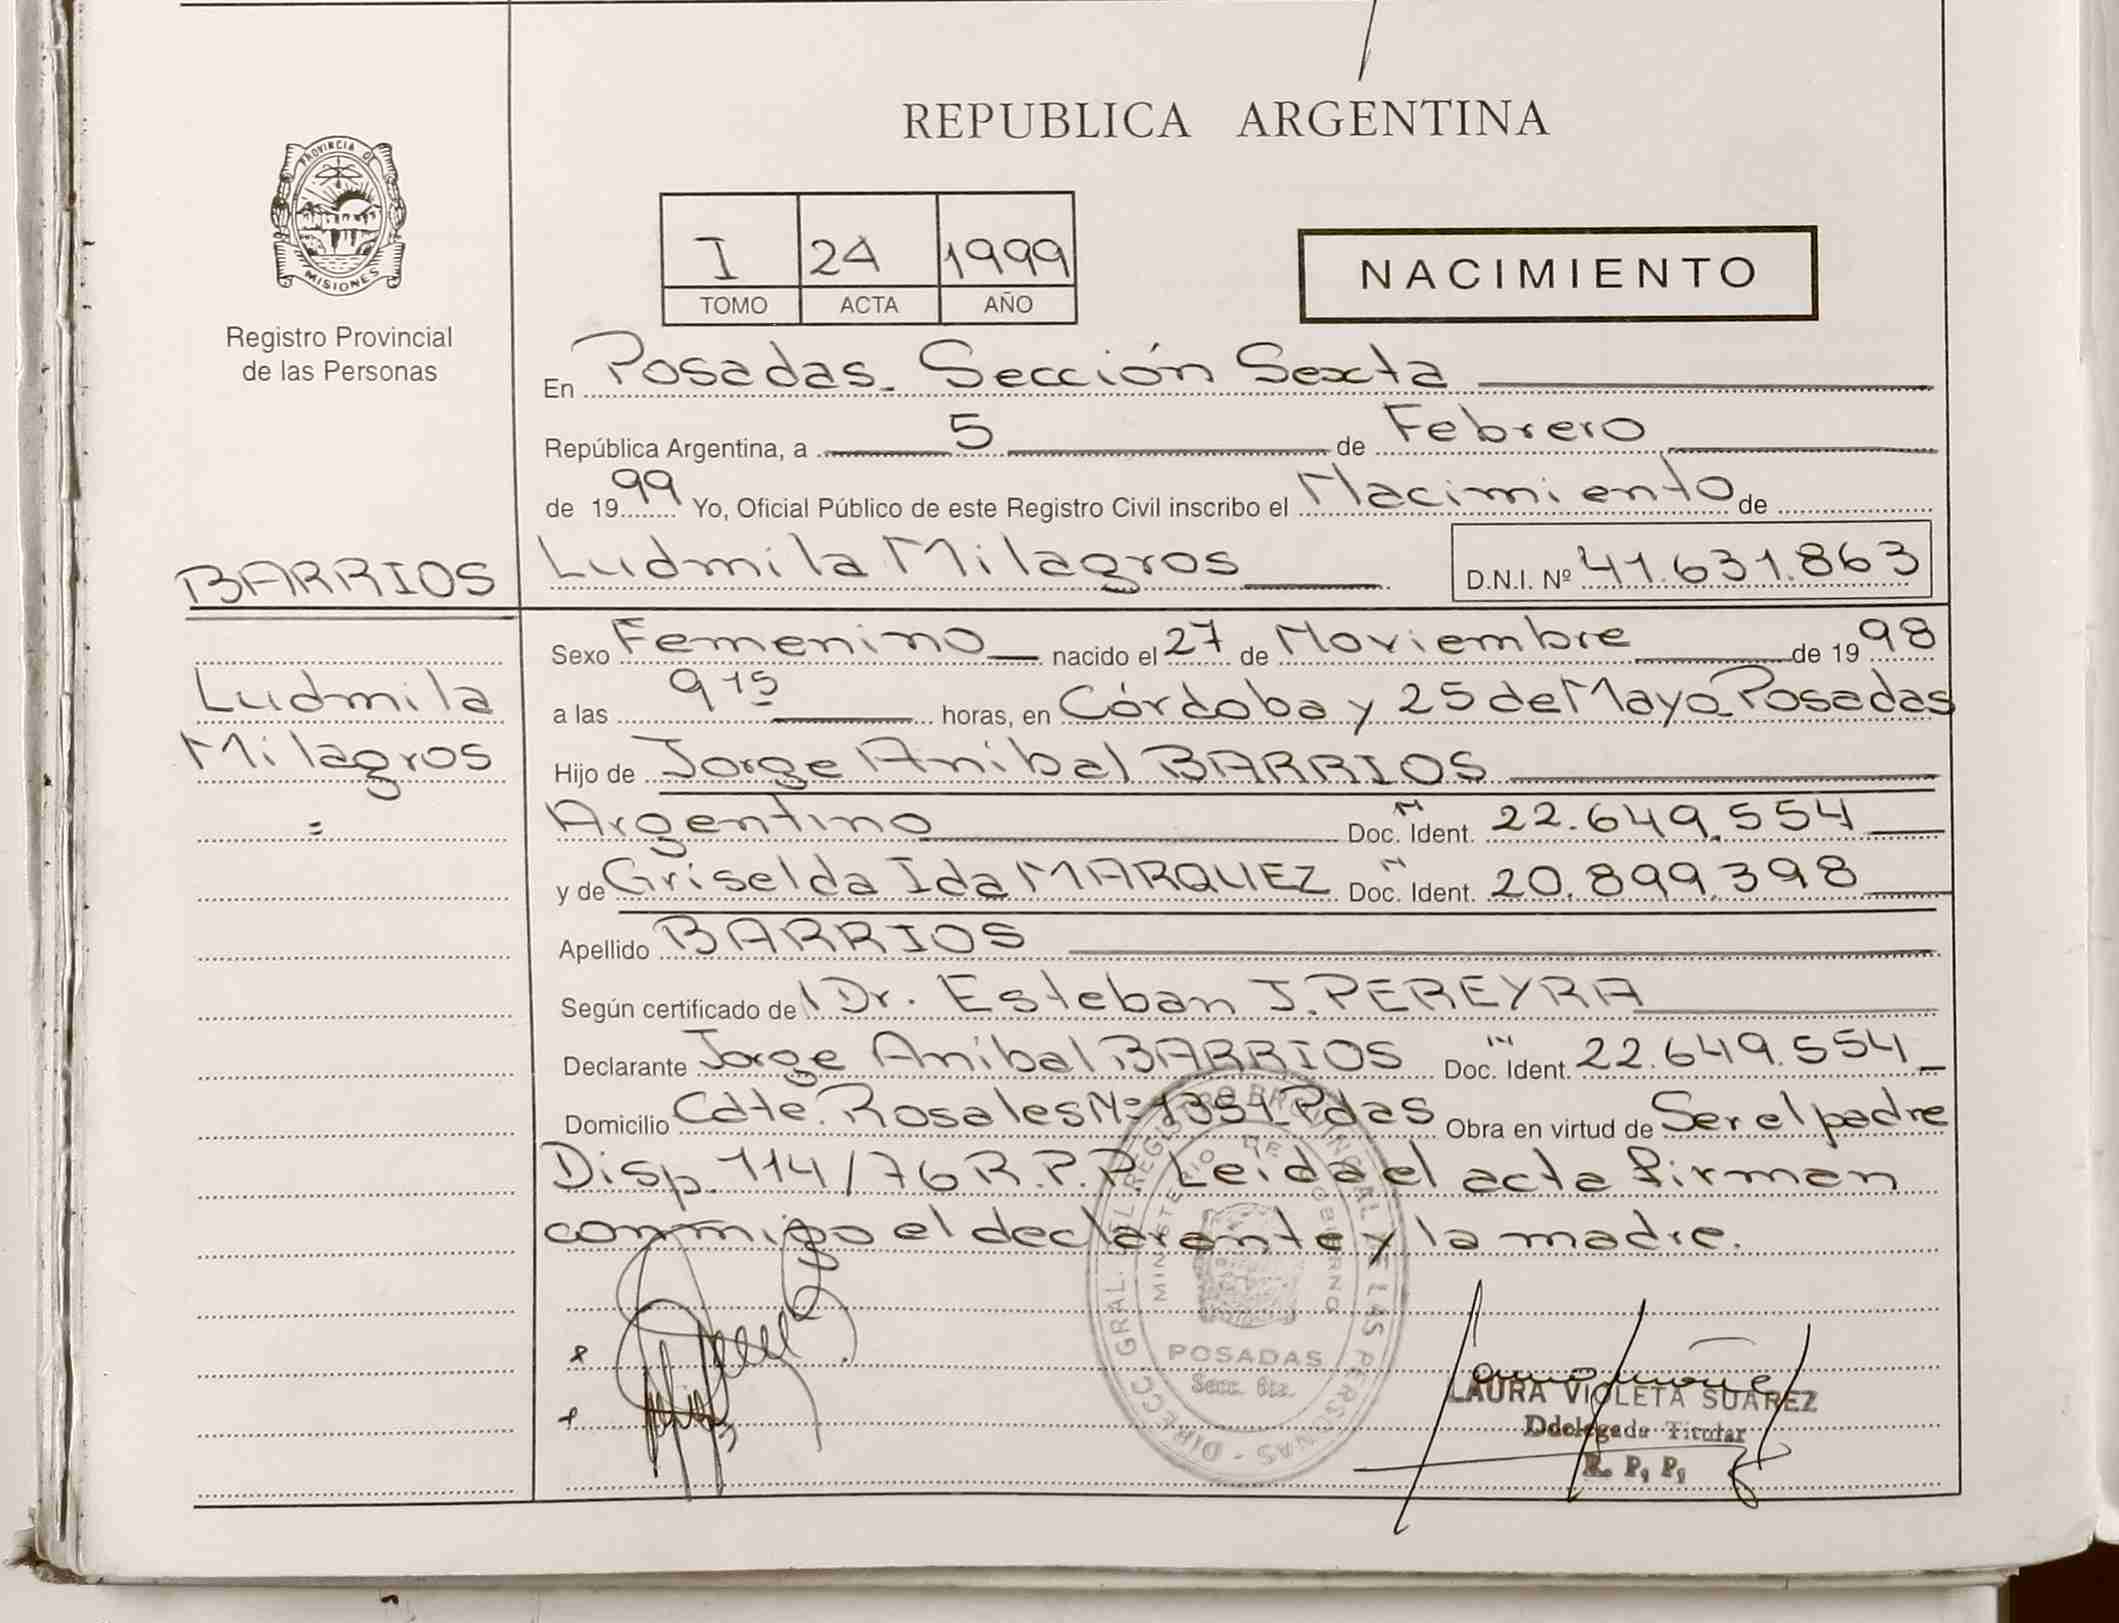 REPUBLICA ARGENTINA
PROVINCIA DE
MISIONES
Registro Provincial
de las Personas
I 24 1999
TOMO ACTA AÑO
NACIMIENTO
En Posadas. Sección Sexta
República Argentina, a 5 de Febrero
de 1999 Yo, Oficial Público de este Registro Civil inscribo el Nacimiento de
BARRIOS Ludmila Milagros D.N.I. Nº 41.631.863
Sexo Femenino nacido el 27 de Noviembre de 1998
Ludmila a las 9 15 horas, en Córdoba y 25 de Mayo Posadas
Milagros Hijo de Jorge Anibal BARRIOS
Argentino Doc. Ident. 22.649.554
y de Griselda Ida MARQUEZ Doc. Ident. 20.899.398
Apellido BARRIOS
Según certificado del Dr. Esteban J. PEREYRA
Declarante Jorge Anibal BARRIOS Doc. Ident. 22.649.554
Domicilio Cdte. Rosales Nº 1351 Pdas Obra en virtud de Ser el padre
Disp. 114/76 R.P.P. Leida el acta firman
conmigo el declarante y la madre.
DIRECC. GRAL. DEL REGISTRO PROVINCIAL DE LAS PERSONAS
MINISTERIO DE GOBIERNO
POSADAS
Secc. 6ta.
LAURA VIOLETA SUAREZ
Ddelegada Titular
R. P. P.